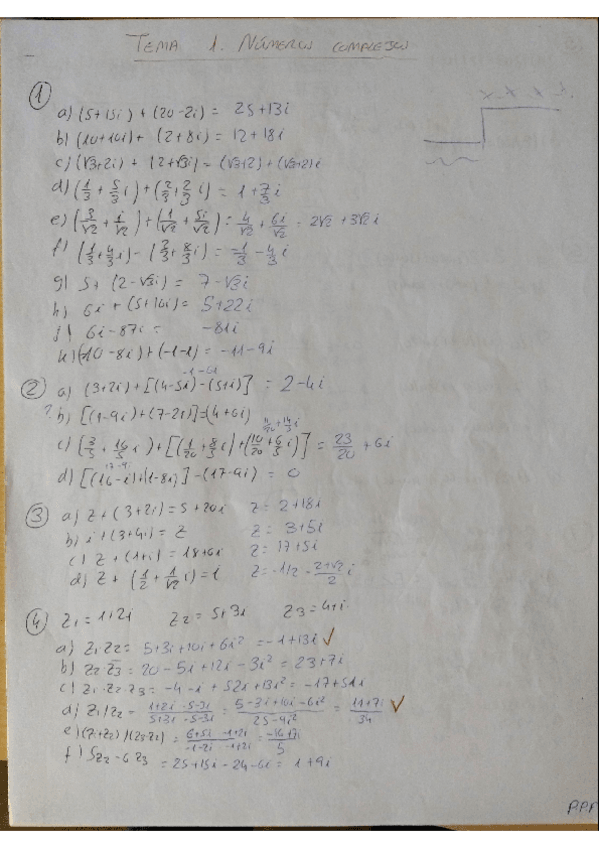 TEMA 1. NÚMEROS COMPLEJOS
①
a) (5+15i) + (20-2i) = 25+13i
b) (10+10i) + (2+8i) = 12+18i
c) (√3+2i) + (2+√3i) = (√3+2) + (√3+2)i
d) (1/3 + 5/3 i) + (2/3 + 2/3 i) = 1 + 7/3 i
e) (3/√2 + i/√2) + (1/√2 + 5i/√2) = 4/√2 + 6i/√2 = 2√2 + 3√2 i
f) (1/3 + 4/3 i) - (2/3 + 8/3 i) = -1/3 - 4/3 i
g) 5 + (2-√3i) = 7-√3i
h) 6i + (5+16i) = 5+22i
j) 6i-87i = -81i
k) (-10-8i) + (-1-i) = -11-9i
-1-6i
② a) (3+2i) + [(4-5i) - (5+i)] = 2-4i
? b) [(1-9i) + (7-2i)] - (4+6i)
c) + 6i
17-9i
d) [(16-i) + (1-8i)] - (17-9i) = 0
③ a) z + (3+2i) = 5+20i z = 2+18i
b) i + (3+4i) = z z = 3+5i
c) z + (1+i) = 18+6i z = 17+5i
d) z + (1/2 + 1/√2 i) = i z = -1/2 - 2+√2/2 i
④ z1 = 1+2i z2 = 5+3i z3 = 4+i
a) z1·z2 = 5+3i+10i+6i² = -1+13i ✓
b) z2·z̅3 = 20-5i+12i-3i² = 23+7i
c) z1·z2·z3 = -4-i+52i+13i² = -17+51i
d) z1/z2 = 1+2i/5+3i · 5-3i/5-3i = 5-3i+10i-6i²/25-9i² = 11+7i/34 ✓
e) = 6+5i/-1-2i · -1+2i/-1+2i = -16+7i/5
f) 5z2-6z3 = 25+15i-24-6i = 1+9i